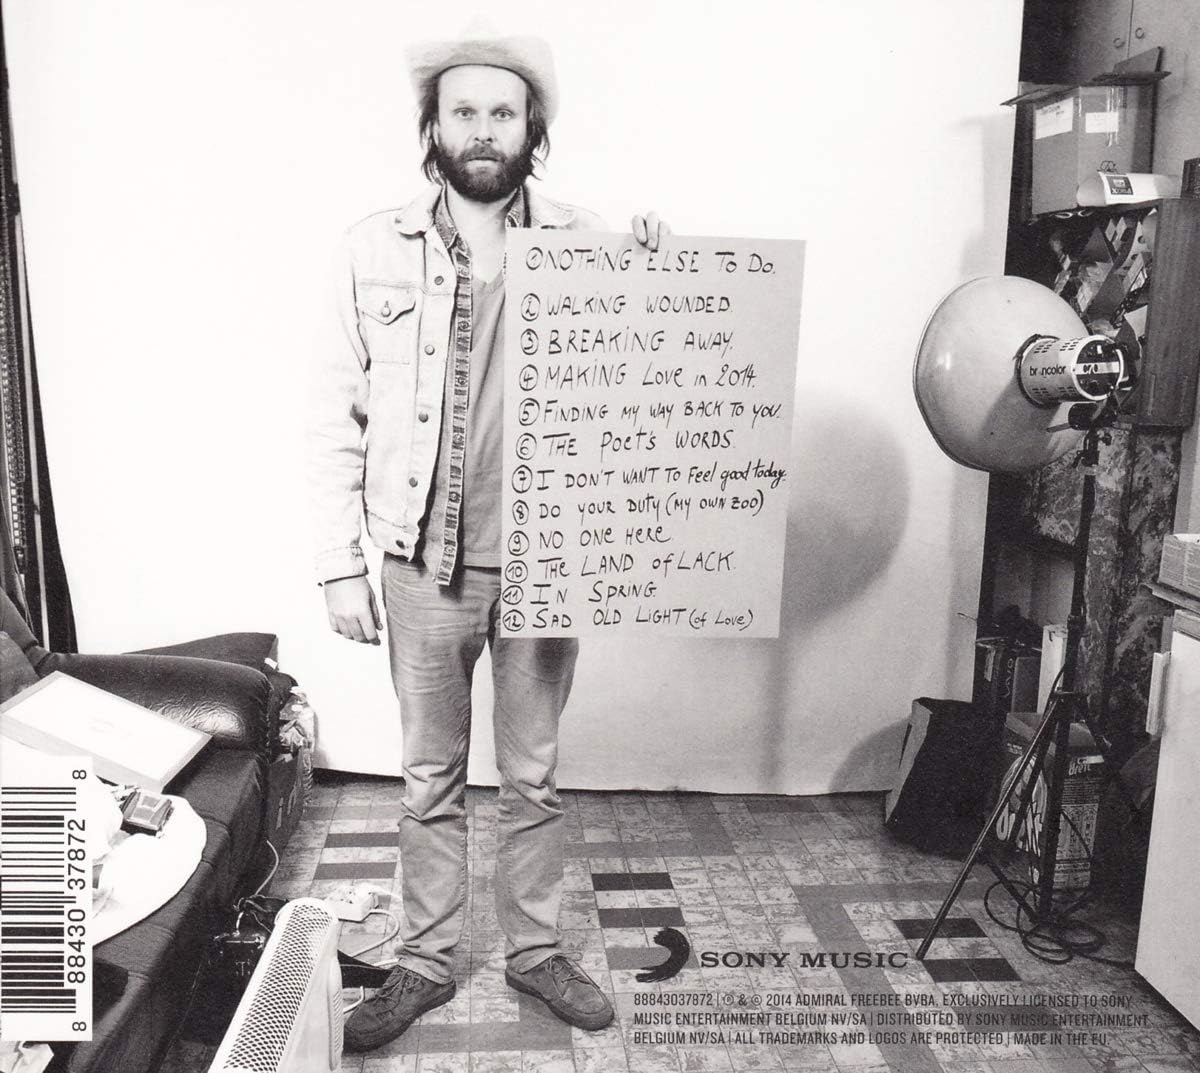 ① NOTHING ELSE TO DO.
② WALKING WOUNDED.
③ BREAKING AWAY.
④ MAKING LOVE in 2014.
⑤ FINDING MY WAY BACK TO YOU.
⑥ THE POET'S WORDS.
⑦ I DON'T WANT TO Feel good today.
⑧ DO YOUR DUTY (MY OWN ZOO)
⑨ NO ONE HERE.
⑩ THE LAND of LACK.
⑪ IN SPRING.
⑫ SAD OLD LIGHT (of Love)
br ncolor
dreft
8 88430 37872 8
SONY MUSIC
88843037872 | ℗ & © 2014 ADMIRAL FREEBEE BVBA, EXCLUSIVELY LICENSED TO SONY
MUSIC ENTERTAINMENT BELGIUM NV/SA | DISTRIBUTED BY SONY MUSIC ENTERTAINMENT
BELGIUM NV/SA | ALL TRADEMARKS AND LOGOS ARE PROTECTED | MADE IN THE EU.